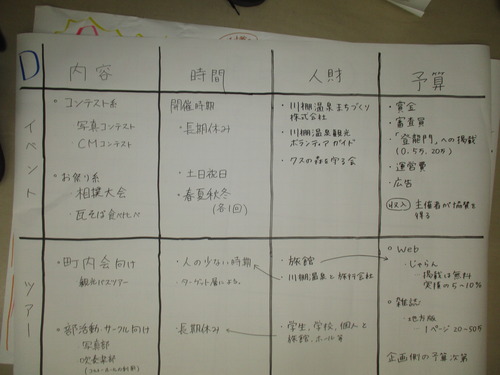 D
内容
時間
人財
予算
イベント
○コンテスト系
・写真コンテスト
・CMコンテスト
○お祭り系
・相撲大会
・瓦そば食べ比べ
開催時期
・長期休み
・土日祝日
・春夏秋冬
(各1回)
・川棚温泉まちづくり
株式会社
・川棚温泉観光
ボランティアガイド
・クスの森を守る会
・賞金
・審査費
・「登龍門」への掲載
(0.5万、20万)
・運営費
・広告
収入 主催者が協賛を
得る
ツアー
○町内会向け
観光バスツアー
○部活動・サークル向け
・写真部
・吹奏楽部
・人の少ない時期
・ターゲット層による。
・長期休み
・旅館
・川棚温泉と旅行会社
・学生、学校、個人と
旅館、ホール等
○Web
・じゃらん
・掲載は無料
実績の5〜10%
○雑誌
・地方版
・1ページ20〜50万
企画側の予算次第